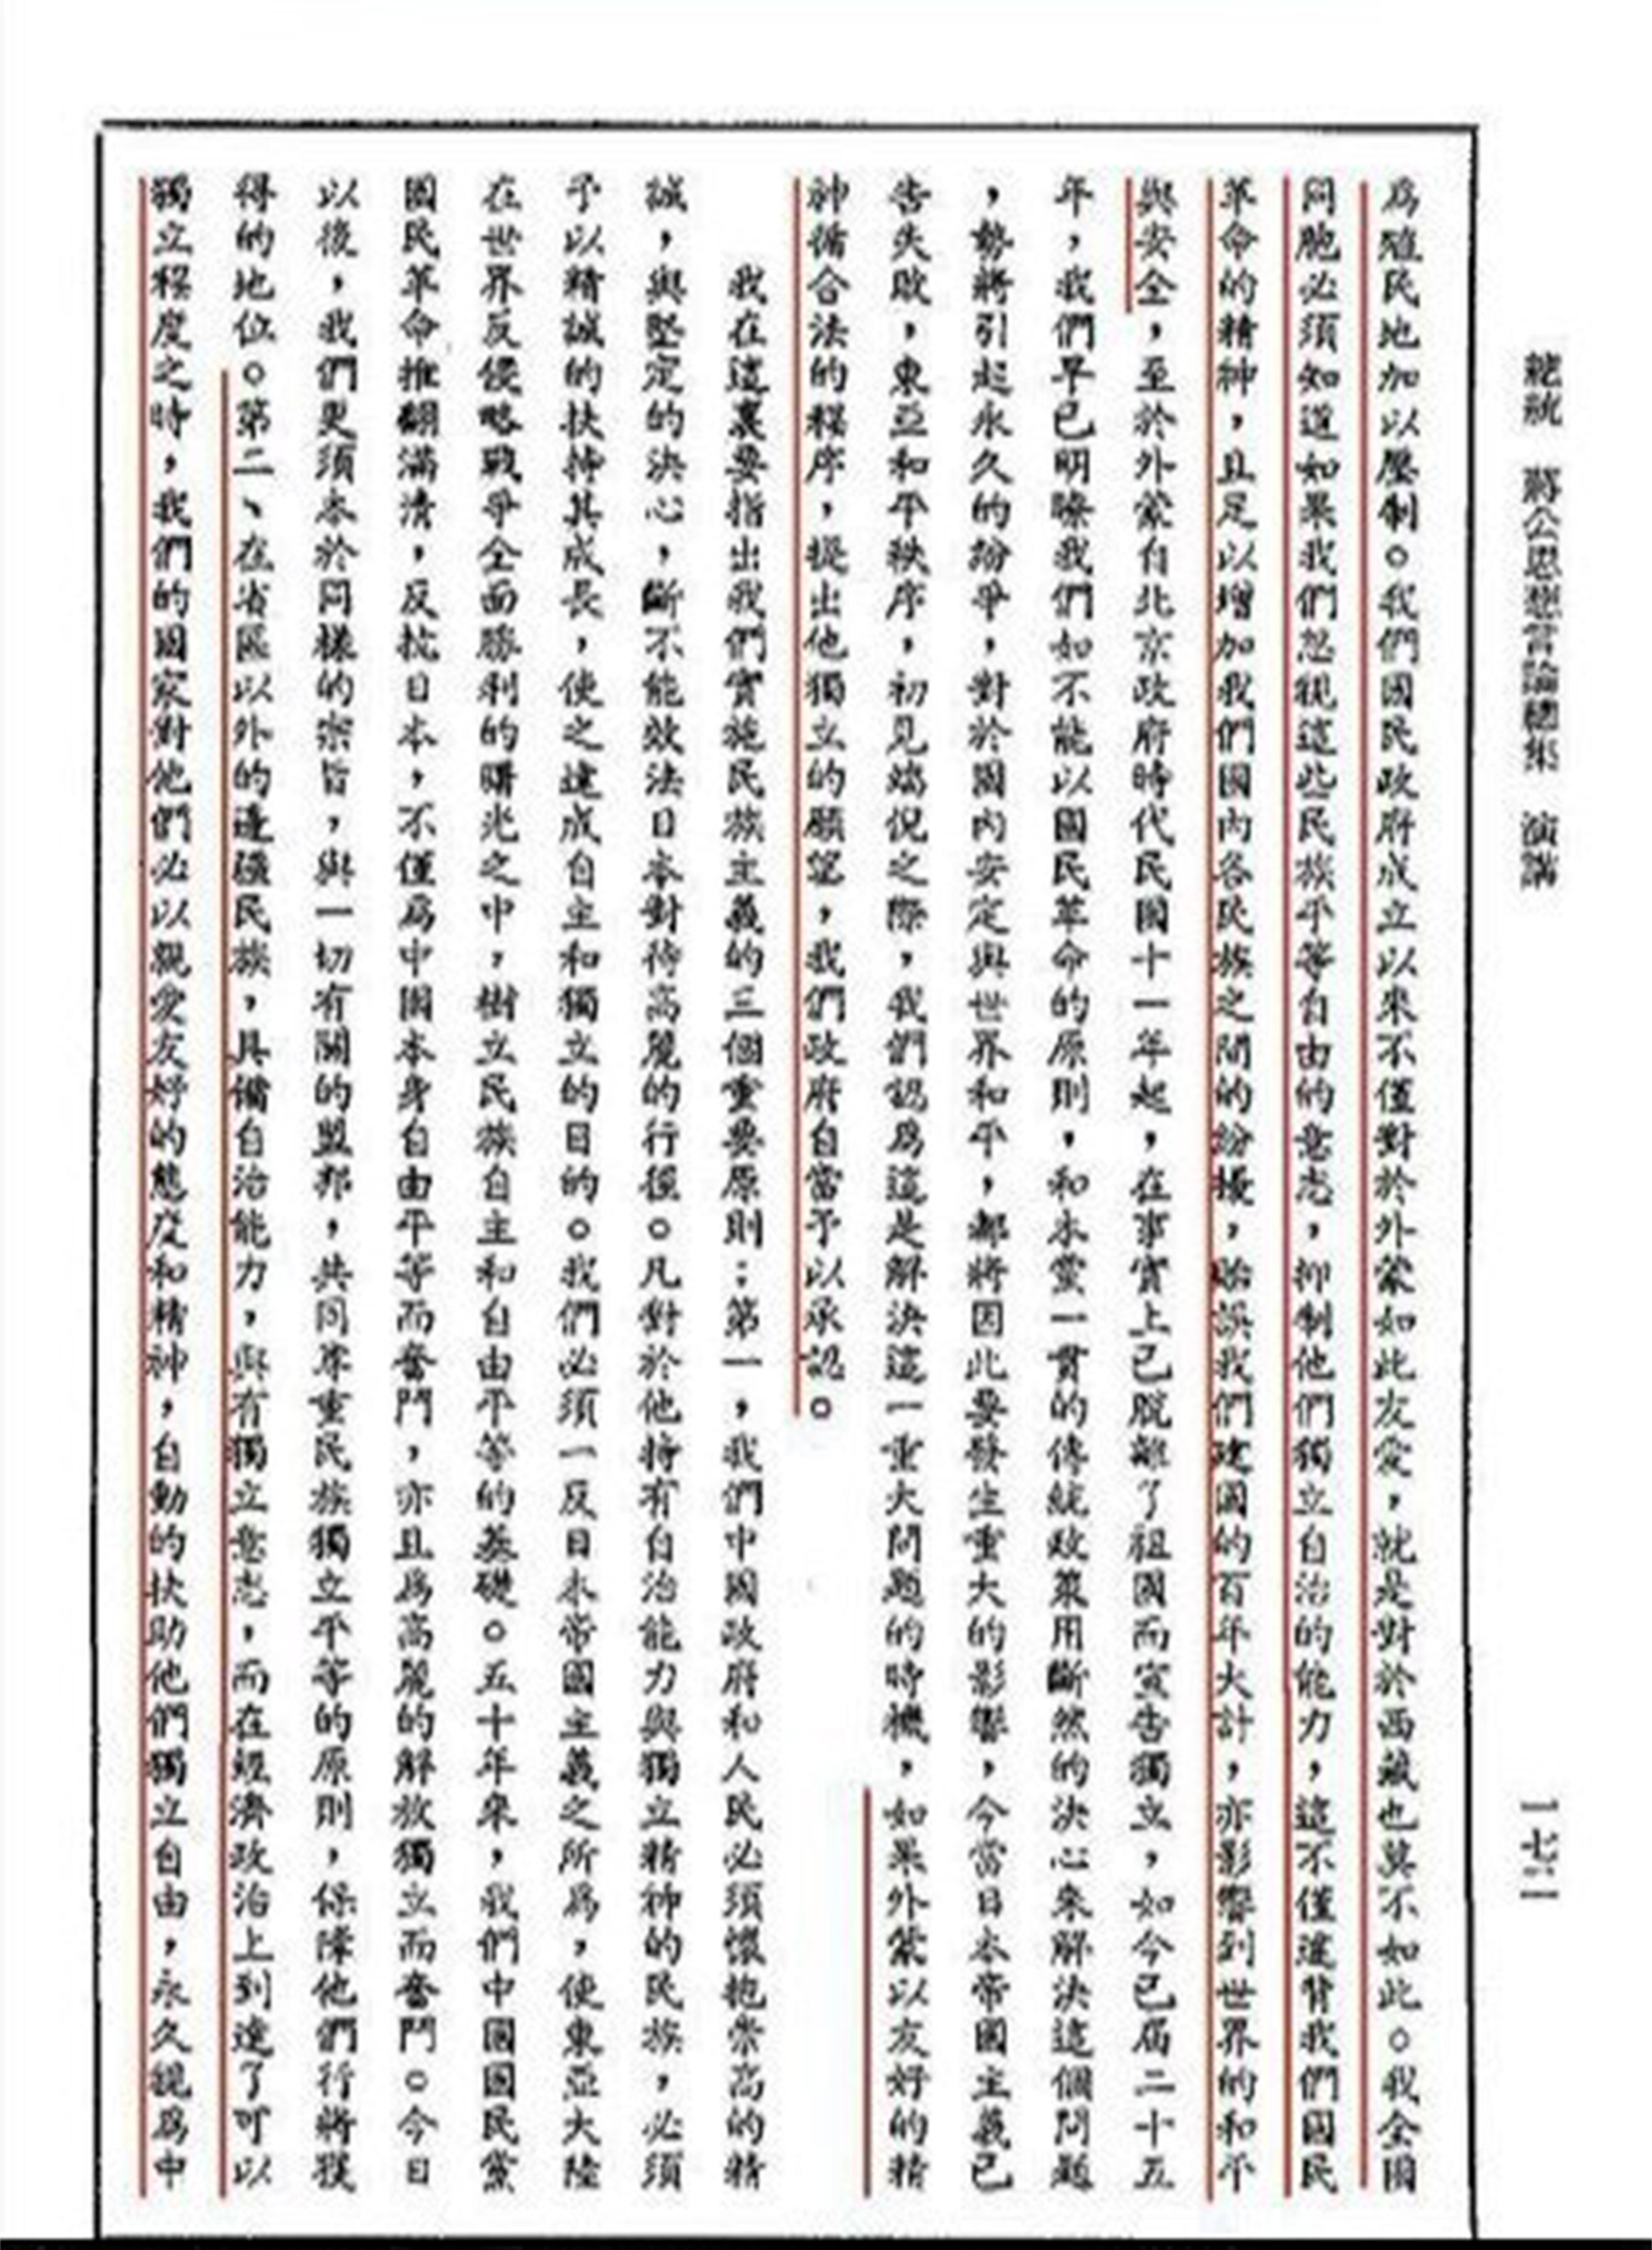 總統　蔣公思想言論總集　演講
一七二
為殖民地加以壓制。我們國民政府成立以來不僅對於外蒙如此友愛，就是對於西藏也莫不如此。我全國
同胞必須知道如果我們忽視這些民族平等自由的意志，抑制他們獨立自治的能力，這不僅違背我們國民
革命的精神，且足以增加我們國內各民族之間的紛擾，貽誤我們建國的百年大計，亦影響到世界的和平
與安全，至於外蒙自北京政府時代民國十一年起，在事實上已脫離了祖國而宣告獨立，如今已屆二十五
年，我們早已明瞭我們如不能以國民革命的原則，和本黨一貫的傳統政策用斷然的決心來解決這個問題
，勢將引起永久的紛爭，對於國內安定與世界和平，都將因此要發生重大的影響，今當日本帝國主義已
告失敗，東亞和平秩序，初見端倪之際，我們認為這是解決這一重大問題的時機，如果外蒙以友好的精
神循合法的程序，提出他獨立的願望，我們政府自當予以承認。
我在這裏要指出我們實施民族主義的三個重要原則：第一，我們中國政府和人民必須懷抱崇高的精
誠，與堅定的決心，斷不能效法日本對待高麗的行徑。凡對於他持有自治能力與獨立精神的民族，必須
予以精誠的扶持其成長，使之達成自主和獨立的目的。我們必須一反日本帝國主義之所為，使東亞大陸
在世界反侵略戰爭全面勝利的曙光之中，樹立民族自主和自由平等的基礎。五十年來，我們中國國民黨
國民革命推翻滿清，反抗日本，不僅為中國本身自由平等而奮鬥，亦且為高麗的解放獨立而奮鬥。今日
以後，我們更須本於同樣的宗旨，與一切有關的盟邦，共同尊重民族獨立平等的原則，保障他們行將獲
得的地位。第二、在省區以外的邊疆民族，具備自治能力，與有獨立意志，而在經濟政治上到達了可以
獨立程度之時，我們的國家對他們必以親愛友好的態度和精神，自動的扶助他們獨立自由，永久視為中